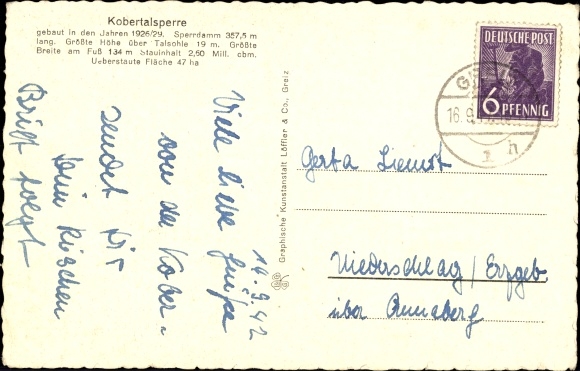 Kobertalsperre
gebaut in den Jahren 1926/29. Sperrdamm 357,5 m
lang. Größte Höhe über Talsohle 19 m. Größte
Breite am Fuß 134 m Stauinhalt 2,60 Mill. cbm.
Ueberstaute Fläche 47 ha
14.9.42
Viele liebe Grüße
von der Kober-
sendet Dir
Dein
Brief folgt
Graphische Kunstanstalt Löffler & Co., Greiz
DEUTSCHE POST
6 PFENNIG
16.9.
h
Gerta Lienst
Niederschlag/Erzgeb.
über Annaberg